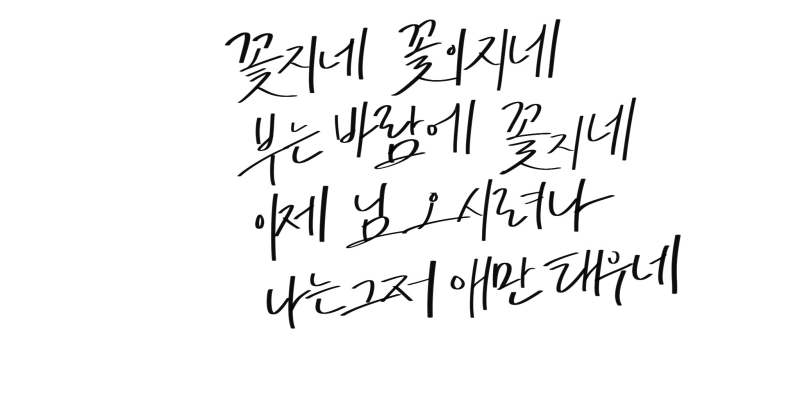 꽃지네 꽃이지네
부는 바람에 꽃지네
이제 님 오시려나
나는그저 애만 태우네